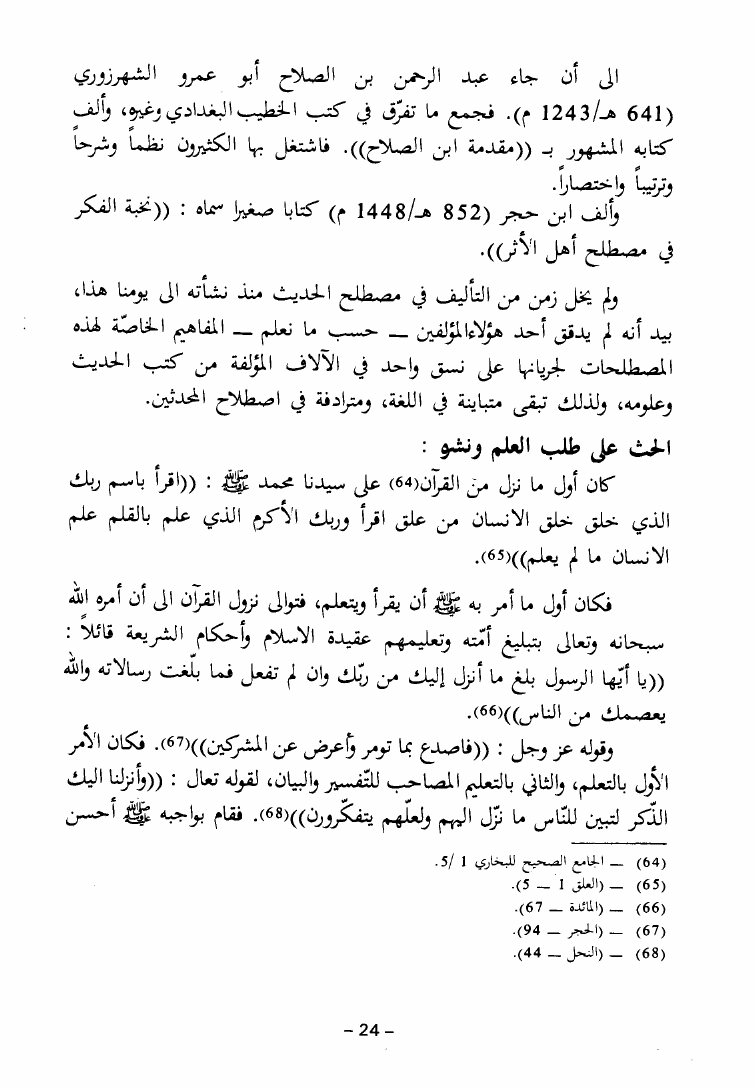 الى أن جاء عبد الرحمن بن الصلاح أبو عمرو الشهرزوري
(641 هـ/1243 م). فجمع ما تفرّق في كتب الخطيب البغدادي وغيره، وألف
كتابه المشهور بـ ((مقدمة ابن الصلاح)). فاشتغل بها الكثيرون نظماً وشرحاً
وترتيباً واختصاراً.
وألف ابن حجر (852 هـ/1448 م) كتابا صغيرا سماه : ((نخبة الفكر
في مصطلح أهل الأثر)).
ولم يخل زمن من التأليف في مصطلح الحديث منذ نشأته الى يومنا هذا،
بيد أنه لم يدقق أحد هؤلاءالمؤلفين — حسب ما نعلم — المفاهيم الخاصّة لهذه
المصطلحات لجريانها على نسق واحد في الآلاف المؤلفة من كتب الحديث
وعلومه، ولذلك تبقى متباينة في اللغة، ومترادفة في اصطلاح المحدثين.
الحث على طلب العلم ونشو :
كان أول ما نزل من القرآن(64) على سيدنا محمد ﷺ : ((اقرأ باسم ربك
الذي خلق خلق الانسان من علق اقرأ وربك الأكرم الذي علم بالقلم علم
الانسان ما لم يعلم))(65).
فكان أول ما أمر به ﷺ أن يقرأ ويتعلم، فتوالى نزول القرآن الى أن أمره الله
سبحانه وتعالى بتبليغ أمّته وتعليمهم عقيدة الاسلام وأحكام الشريعة قائلاً :
((يا أيّها الرسول بلغ ما أنزل إليك من ربّك وان لم تفعل فما بلّغت رسالاته والله
يعصمك من الناس))(66).
وقوله عز وجل : ((فاصدع بما تومر وأعرض عن المشركين))(67). فكان الأمر
الأول بالتعلم، والثاني بالتعليم المصاحب للتّفسير والبيان، لقوله تعال : ((وأنزلنا اليك
الذّكر لتبين للنّاس ما نزّل اليهم ولعلّهم يتفكّرورن))(68). فقام بواجبه ﷺ أحسن
(64) — الجامع الصحيح للبخاري 1 /5.
(65) — (العلق 1 — 5).
(66) — (المائدة — 67).
(67) — (الحجر — 94).
(68) — (النحل — 44).
– 24 –